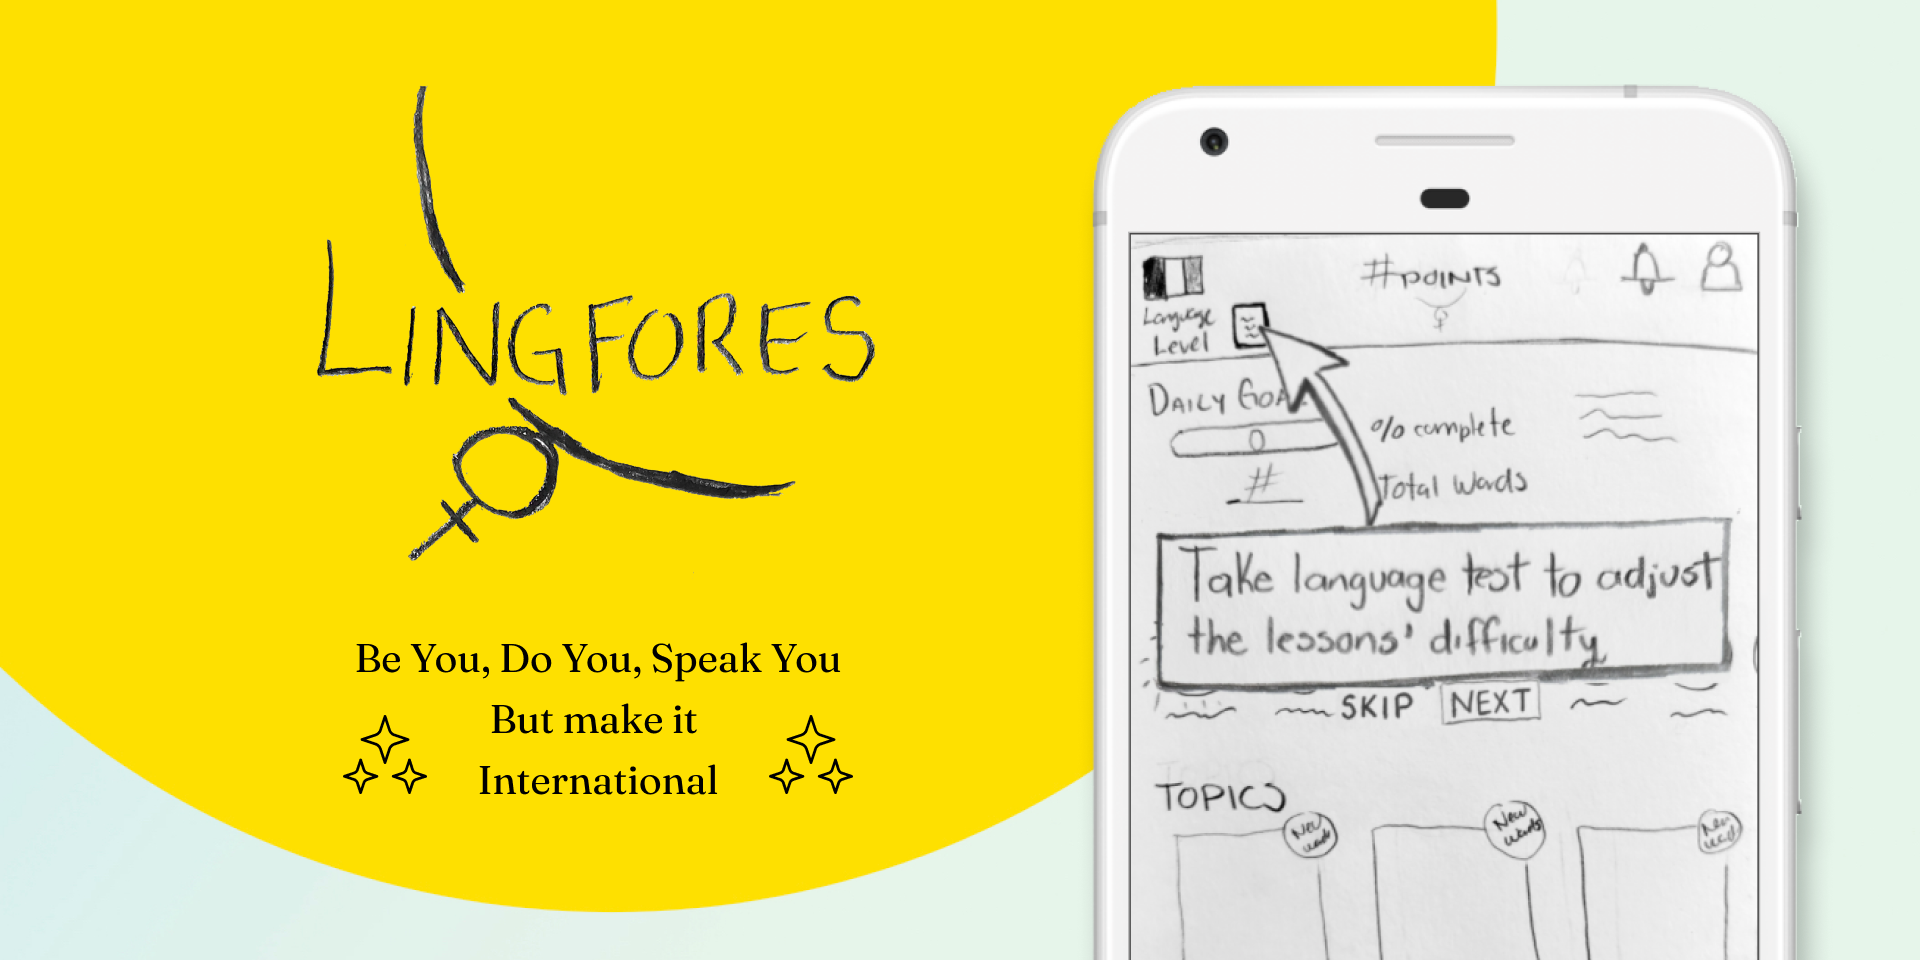 LINGFORES
Be You, Do You, Speak You
But make it
International
#POINTS
Language
Level
DAILY GOA
% complete
0
#
Total Words
Take language test to adjust
the lessons' difficulty
SKIP NEXT
TOPICS
New
Words
New
Words
New